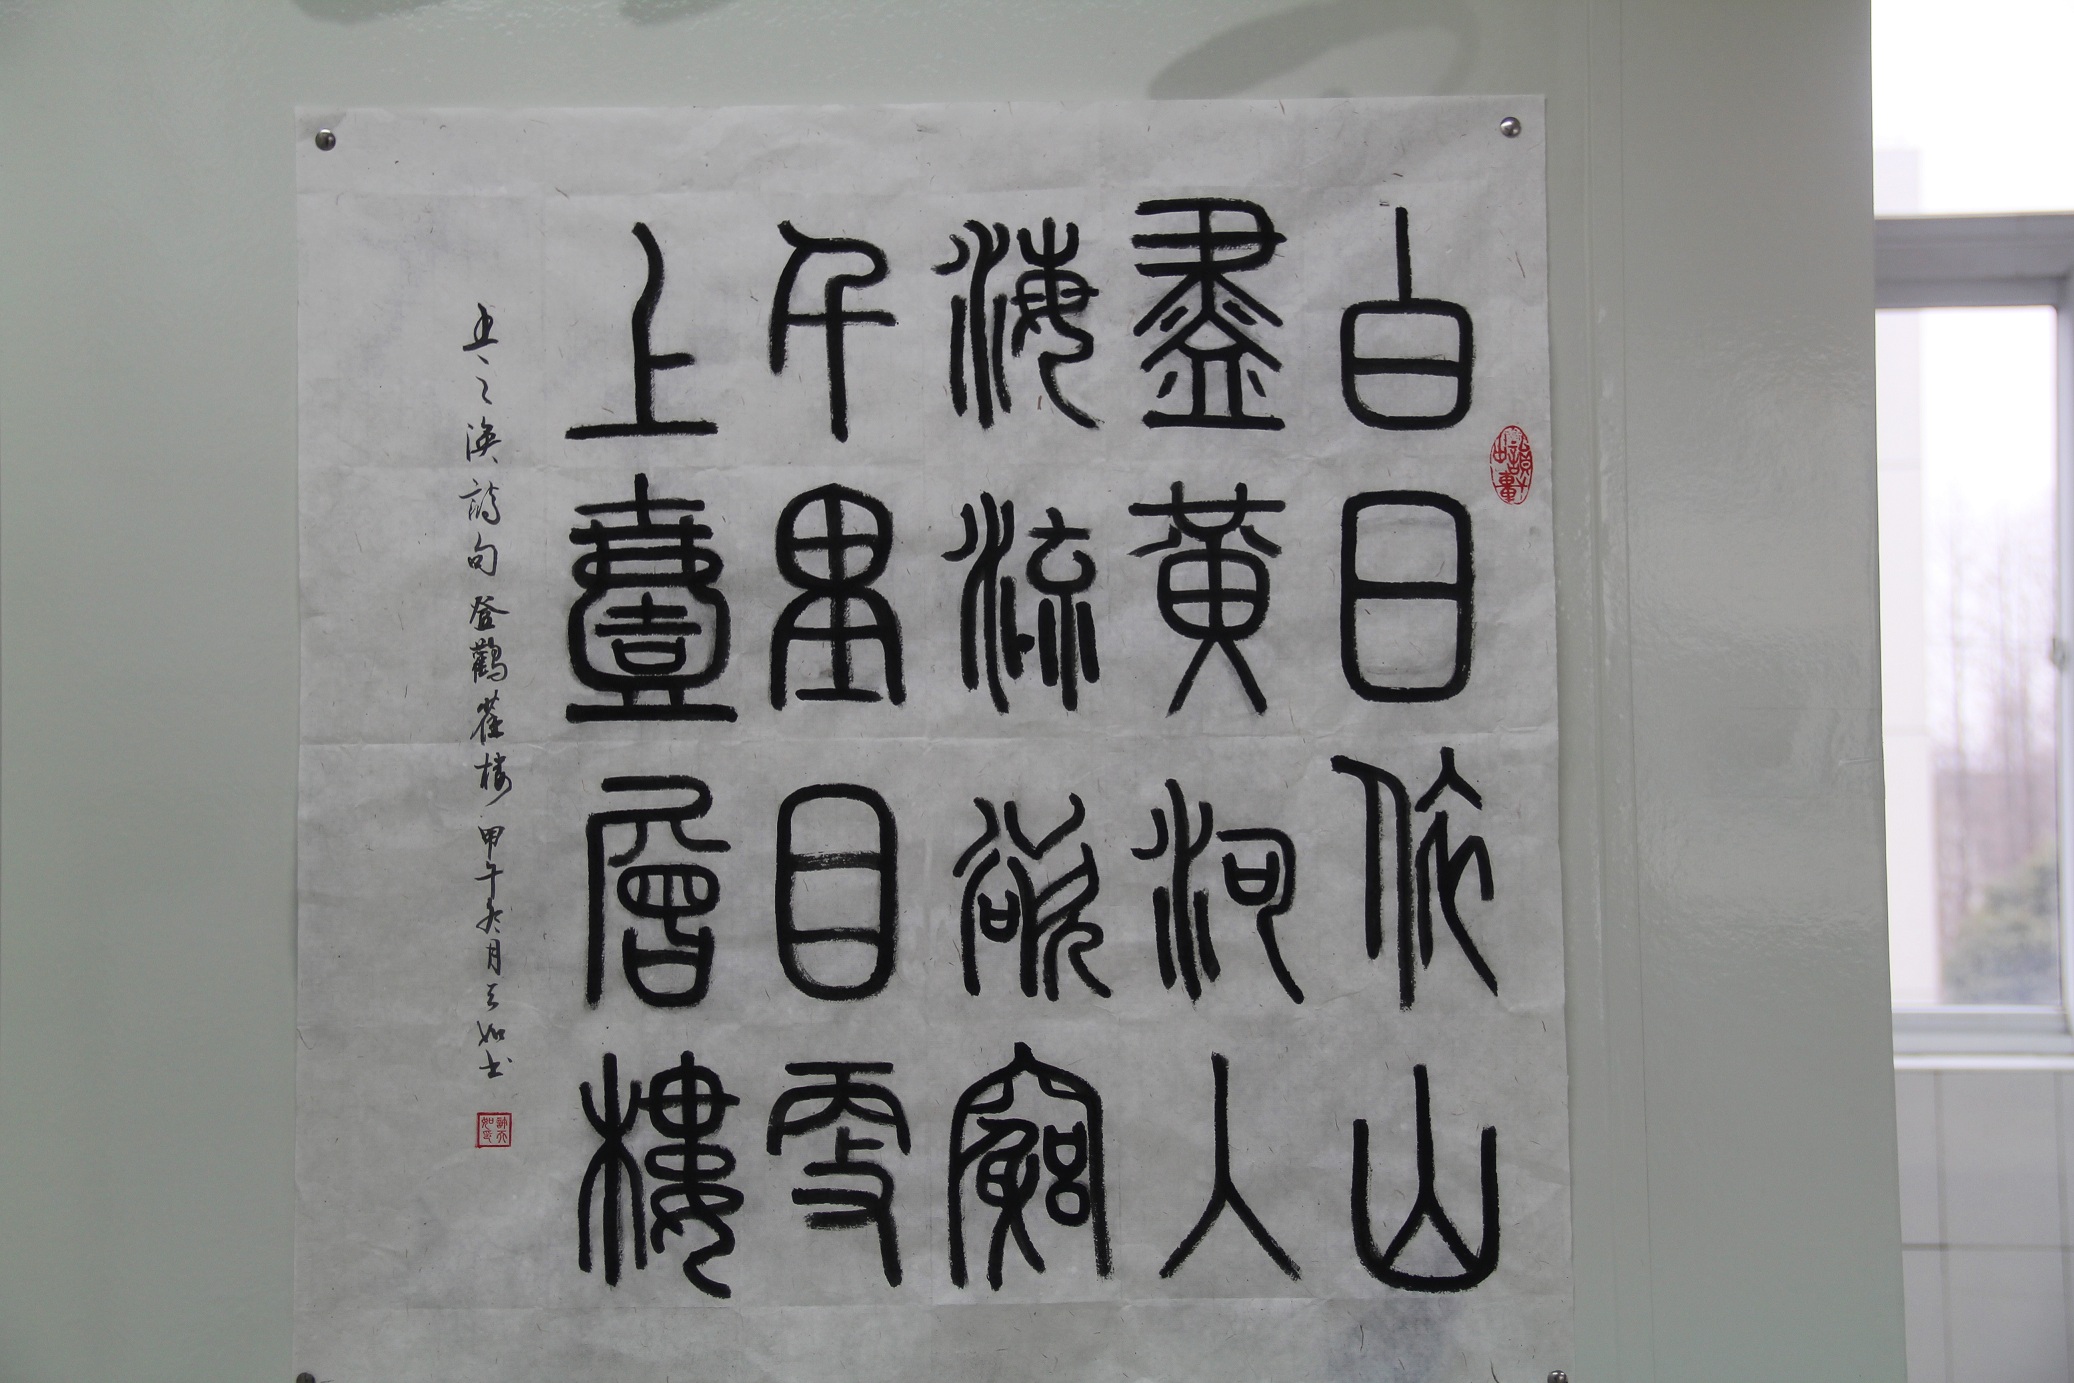 白日依山
盡黃河入
海流欲窮
千里目更
上壹層樓
王之渙詩句登鸛雀楼甲午冬月天如书